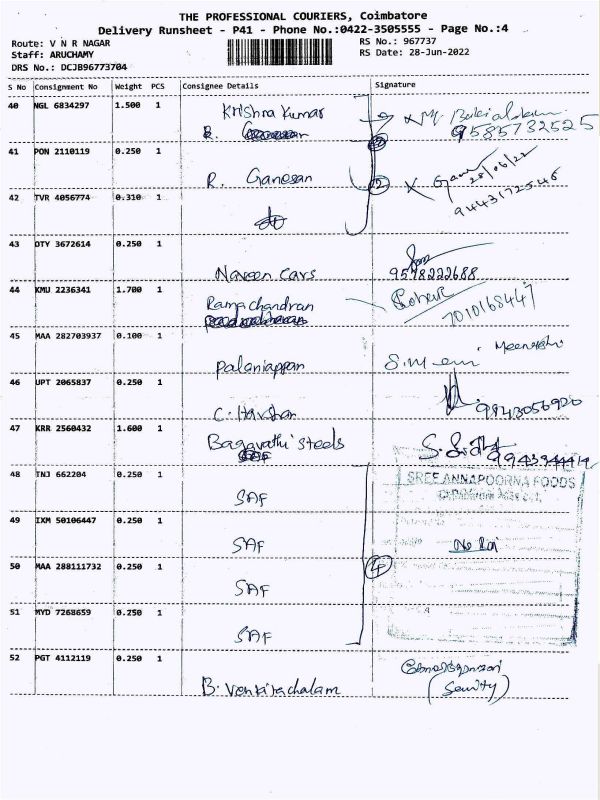 THE PROFESSIONAL COURIERS, Coimbatore
Delivery Runsheet - P41 - Phone No.:0422-3505555 - Page No.:4
Route: V N R NAGAR RS No.: 967737
Staff: ARUCHAMY RS Date: 28-Jun-2022
DRS No.: DCJB96773704
S No Consignment No Weight PCS Consignee Details Signature
40 NGL 6834297 1.500 1 Krishna Kumar
9585732525
41 PON 2110119 0.250 1 R. Ganesan 2 28/06/22
9443172546
42 TVR 4056774 0.310 1
43 DTY 3672614 0.250 1 Naveen Cars 9578222688
44 KMU 2236341 1.700 1 Ramachandran 7010168447
45 MAA 282703937 0.100 1 Palaniappan Meenakshi
46 UPT 2065837 0.250 1 C. Harshan 9843056920
47 KRR 2560432 1.600 1 Bagavathi steels
48 TNJ 662204 0.250 1 SAF SREE ANNAPOORNA FOODS
49 IXM 50106447 0.250 1 SAF
50 MAA 288111732 0.250 1 SAF 4
51 MYD 7268659 0.250 1 SAF
52 PGT 4112119 0.250 1 B. Venkitachalam (Security)